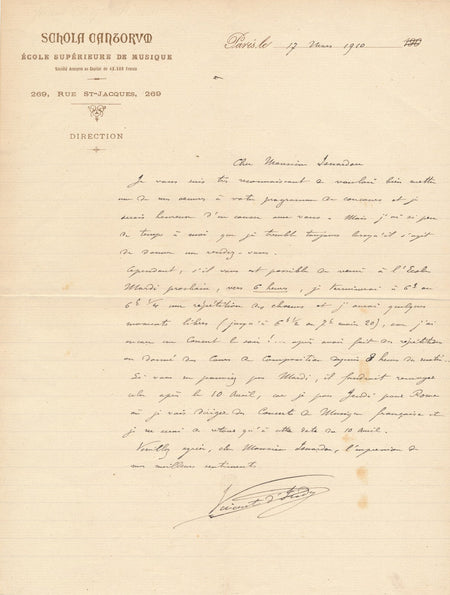 SCHOLA CANTORVM
ÉCOLE SUPÉRIEURE DE MUSIQUE
Société Anonyme au Capital de
269, RUE ST-JACQUES, 269
DIRECTION
Paris, le 17 Mars 1910
Cher Monsieur Isnardon
Je vous suis très reconnaissant de vouloir bien mettre
une de mes œuvres à votre programme de concours et je
serais heureux d'en causer avec vous - Mais j'ai si peu
de temps à moi que je tremble toujours lorsqu'il s'agit
de donner un rendez-vous.
Cependant, s'il vous est possible de venir à l'Ecole
Mardi prochain, vers 6 heures, je terminerai à 6h ou
6h 1/4 une répétition des chœurs et j'aurai quelques
moments libres (jusqu'à 6h 1/2 ou 7h moins 20), car j'ai
encore un Concert le soir! ... après avoir fait des répétitions
ou donné des cours de Composition depuis 8 heures du matin...
Si vous ne pouviez pas Mardi, il faudrait remettre
cela après le 10 Avril, car je pars Jeudi pour Rome
où je vais diriger des Concerts de Musique française et
je ne serai de retour qu'à cette date du 10 Avril.
Veuillez agréer, cher Monsieur Isnardon, l'impression de
mes meilleurs sentiments
Vincent d'Indy